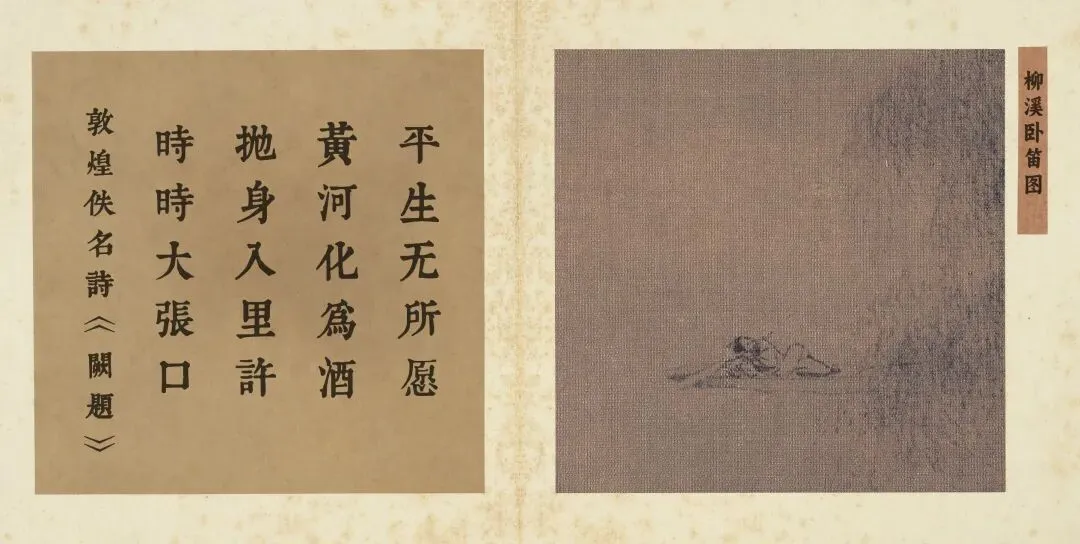 柳溪卧笛图
平生无所愿
黃河化為酒
抛身入里許
時時大張口
敦煌佚名詩《闕題》